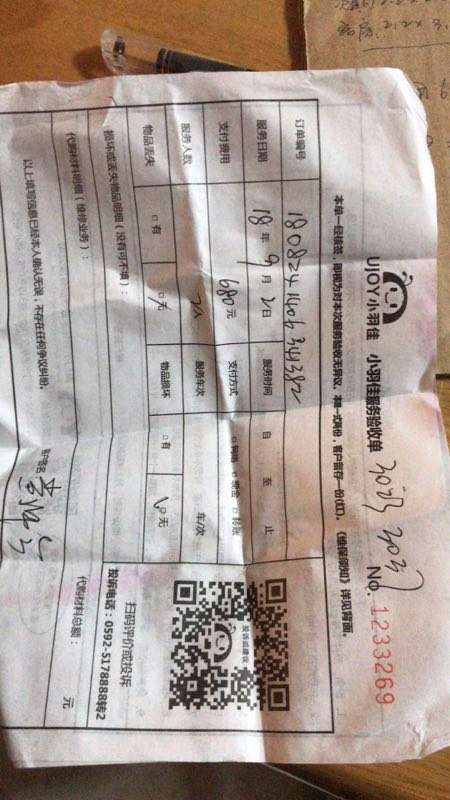 UJOY小羽佳 小羽佳服务验收单
No. 1233269
本单一经核签，即视为对本次服务验收无异议，本单一式两份，客户留存一份(红)。《维保须知》详见背面。
订单编号 180824140634382
服务日期 18年9月2日 服务时间 自 至 止
支付费用 680元 支付方式 □网络 □现金 □转账
服务人数 服务车次 车/次
物品丢失 □有 □无 物品损坏 □有 □无
损坏或丢失物品明细（没有可不填）：
代购材料明细（维修业务）：
代购材料总额： 元
以上填写信息已经本人确认无误，不存在任何争议纠纷。
客户签名
投诉或建议
扫码评价或投诉
投诉电话：0592-5178888转2